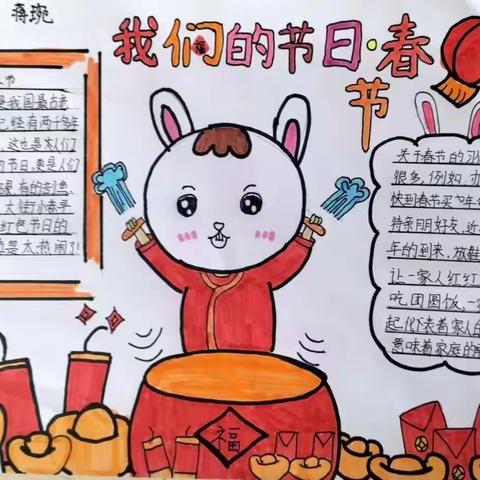 蒋琬
我们的节日·春
节
节
是我国最古老
已经有两千多年
这也是本人们
的节日,更是人们
大街小巷早
红色节日的
是太热闹了!
关于春节的习
很多,例如,办
快到春节买年
待亲朋好友,近
年的到来,放鞭
让一家人红红
吃团圆饭,一
起代下表着家人的
意味着家庭的
福
福